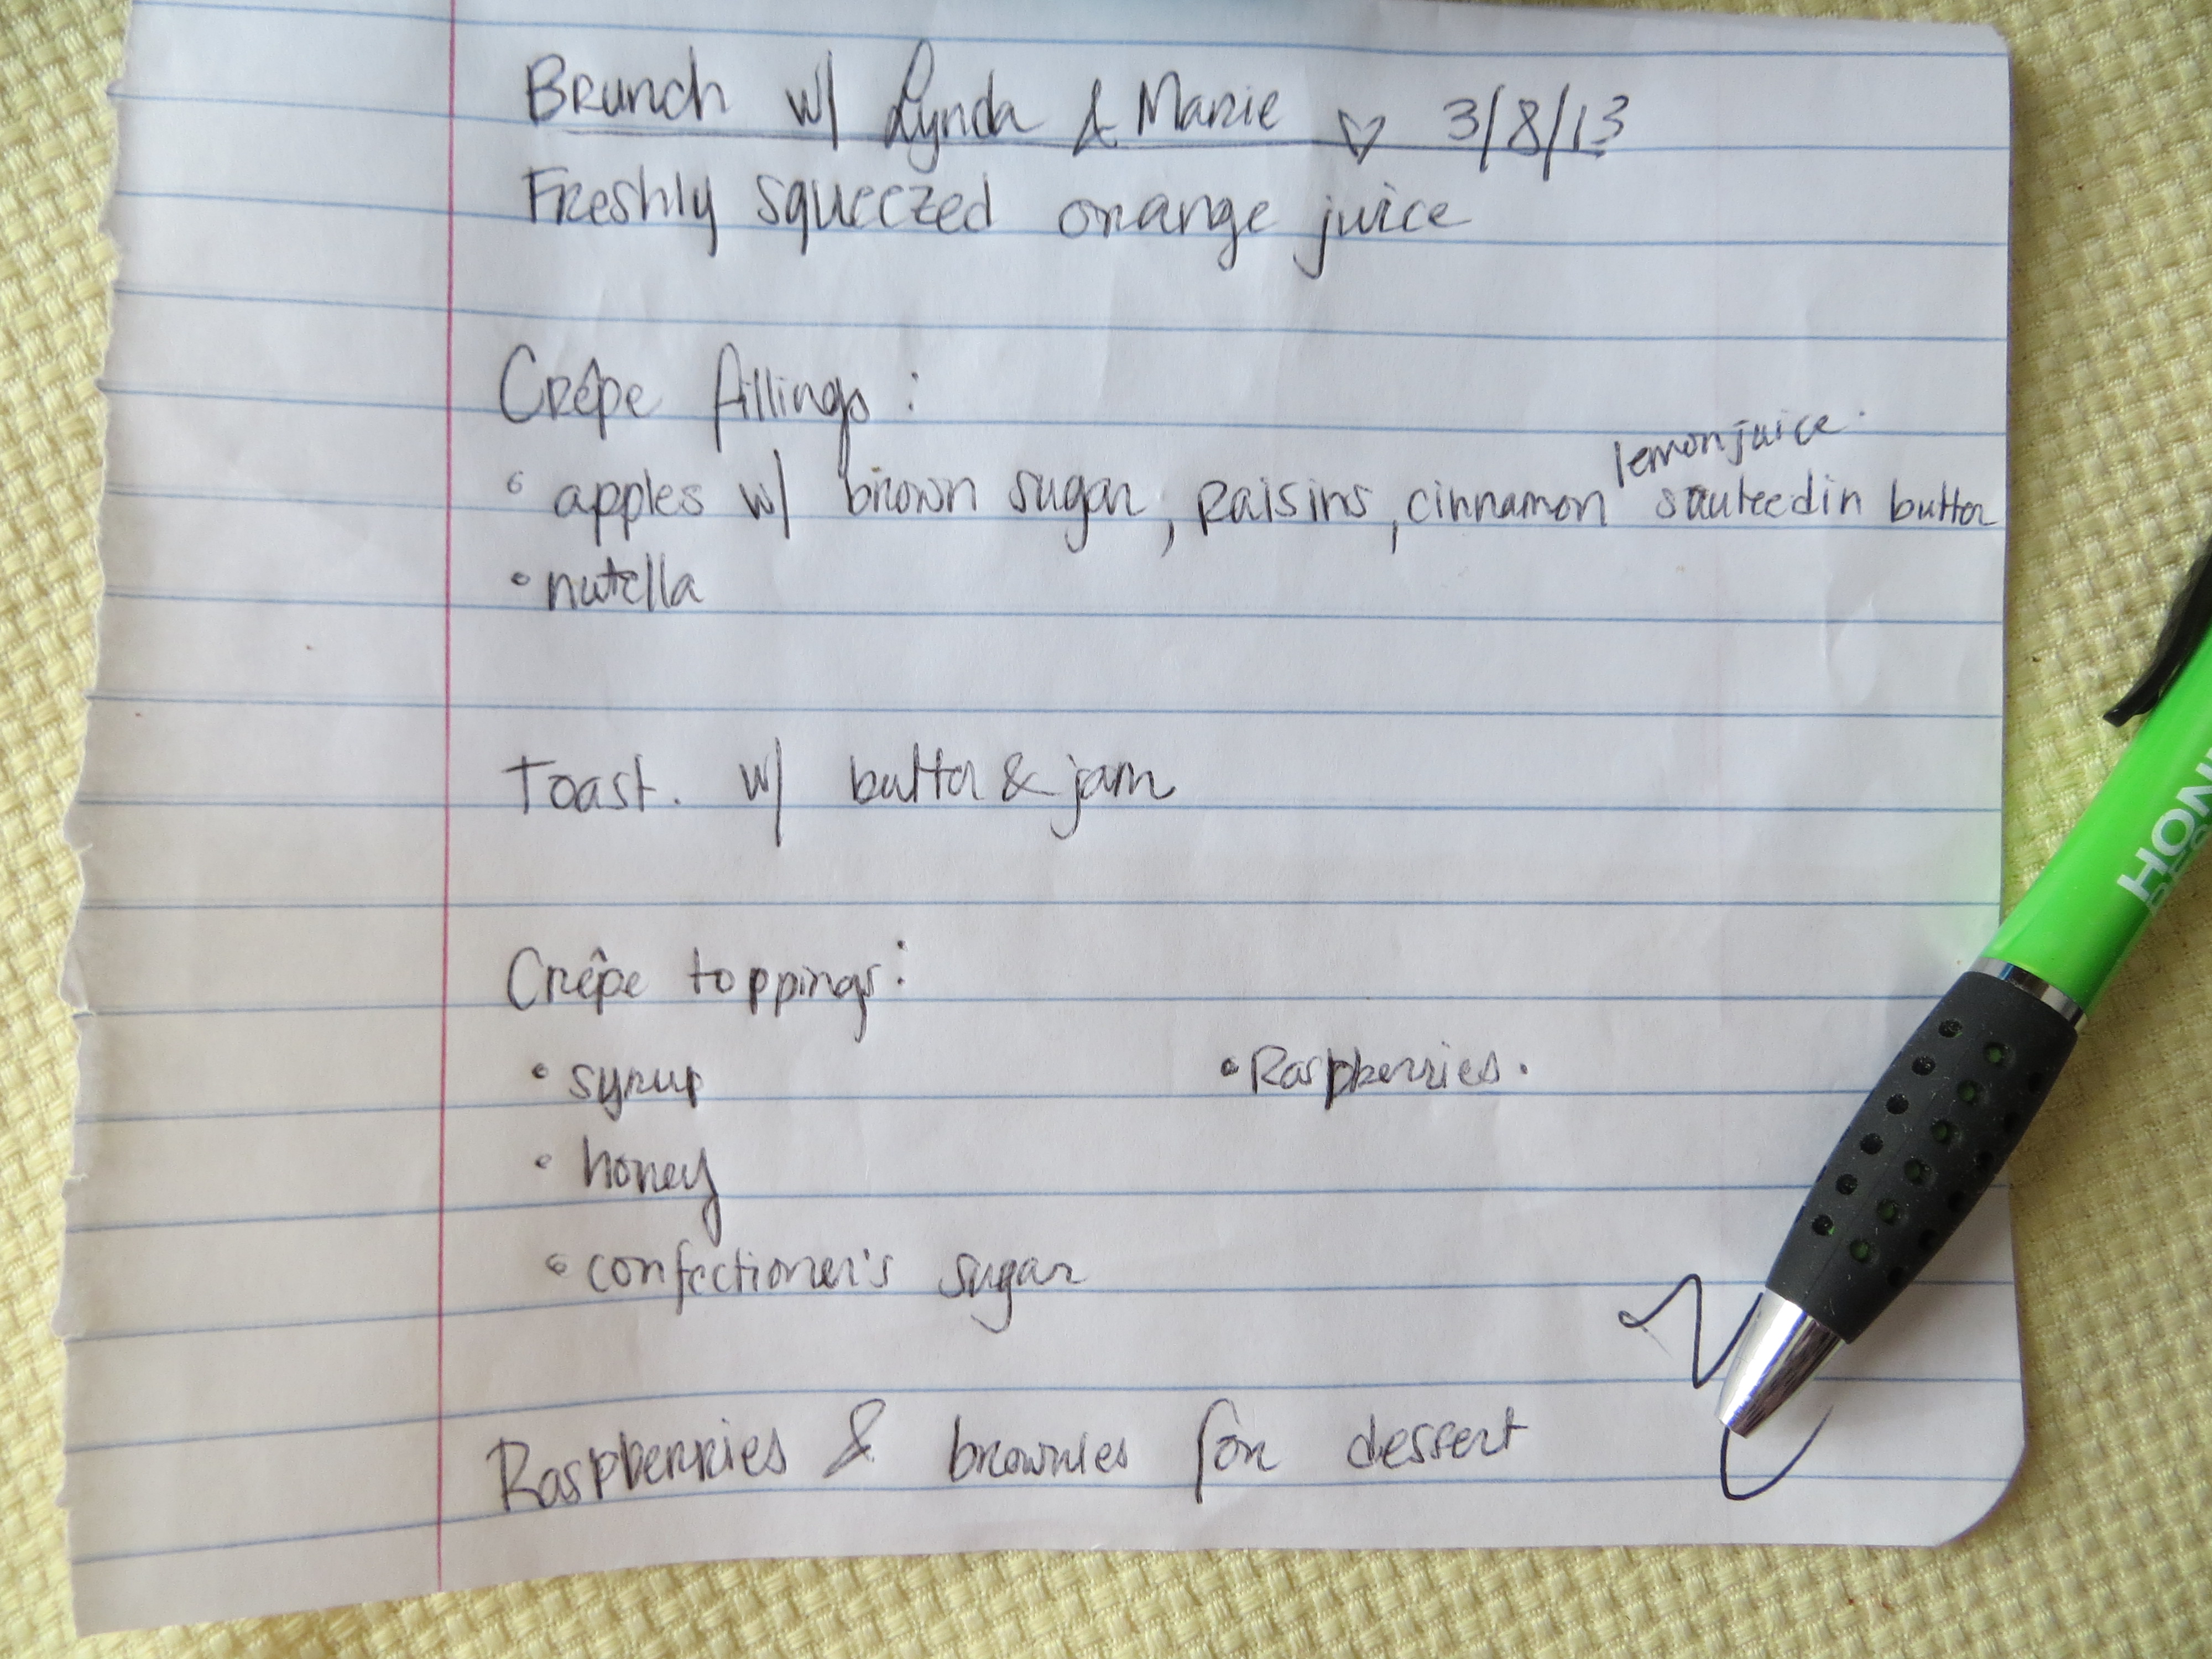 Brunch w/ Lynda & Marie ♡ 3/8/13
Freshly squeezed orange juice
Crêpe fillings:
• apples w/ brown sugar, raisins, cinnamon lemon juice sauteed in butter
• nutella
Toast. w/ butter & jam
Crêpe toppings:
• syrup • Raspberries.
• honey
• confectioner's sugar
Raspberries & brownies for dessert